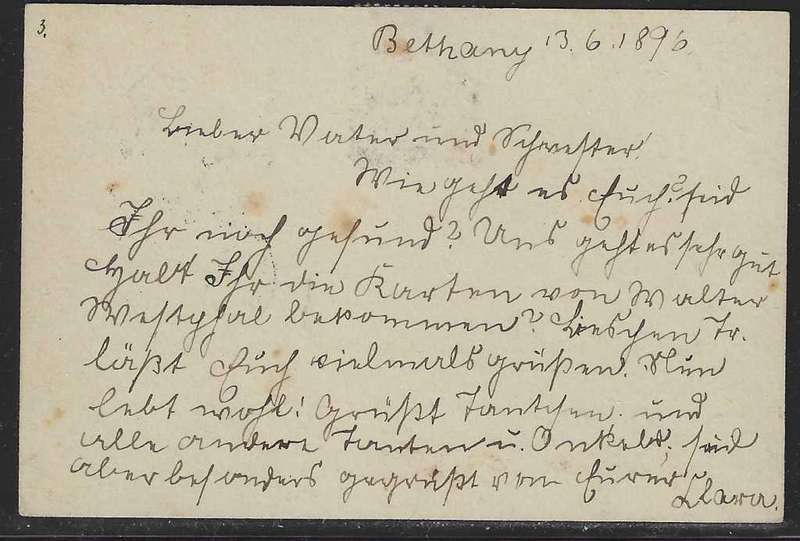 3.
Bethany 13.6.1896.
Lieber Vater und Schwester!
Wie geht es Euch? seid
Ihr noch gesund? Uns geht es sehr gut
Habt Ihr die Karten von Walter
Westphal bekommen? Lieschen Tr.
läßt Euch vielmals grüßen. Nun
lebt wohl! Grüßt Tantchen. und
alle andere Tanten u. Onkels, seid
aber besonders gegrüßt von Eurer
Clara.